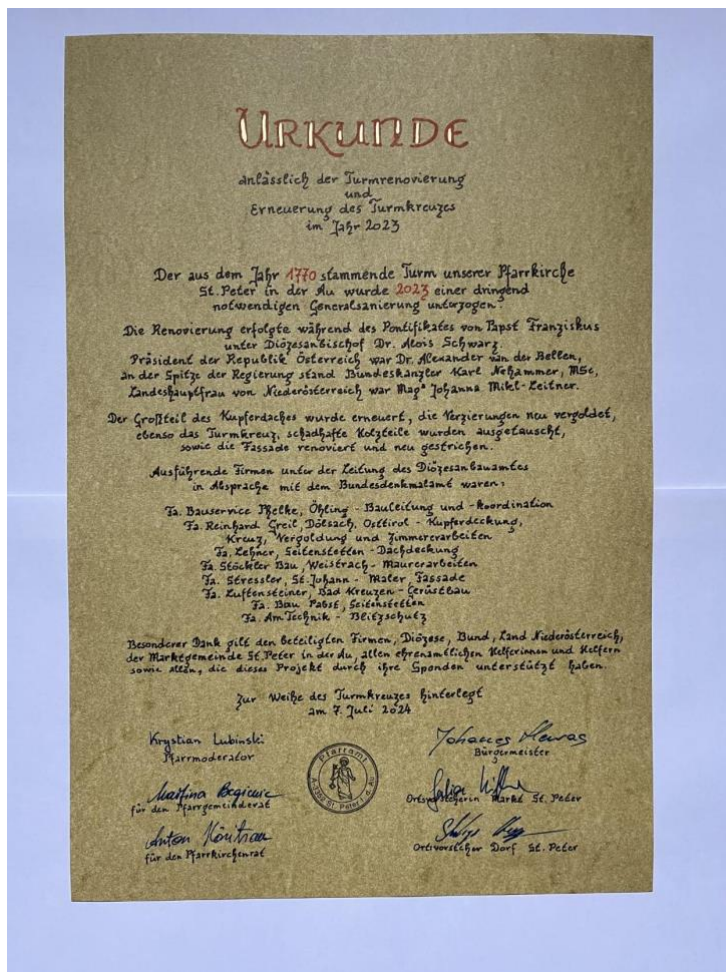 URKUNDE
anlässlich der Turmrenovierung
und
Erneuerung des Turmkreuzes
im Jahr 2023
Der aus dem Jahr 1770 stammende Turm unserer Pfarrkirche
St. Peter in der Au wurde 2023 einer dringend
notwendigen Generalsanierung unterzogen.
Die Renovierung erfolgte während des Pontifikates von Papst Franziskus
unter Diözesanbischof Dr. Alois Schwarz.
Präsident der Republik Österreich war Dr. Alexander van der Bellen,
an der Spitze der Regierung stand Bundeskanzler Karl Nehammer, MSc,
Landeshauptfrau von Niederösterreich war Magª Johanna Mikl-Leitner.
Der Großteil des Kupferdaches wurde erneuert, die Verzierungen neu vergoldet,
ebenso das Turmkreuz, schadhafte Holzteile wurden ausgetauscht,
sowie die Fassade renoviert und neu gestrichen.
Ausführende Firmen unter der Leitung des Diözesanbauamtes
in Absprache mit dem Bundesdenkmalamt waren:
Fa. Bauservice Pfelke, Öhling - Bauleitung und -koordination
Fa. Reinhard Greil, Dölsach, Osttirol - Kupferdeckung,
Kreuz, Vergoldung und Zimmererarbeiten
Fa. Lehner, Seitenstetten - Dachdeckung
Fa. Stöckler Bau, Weistrach - Maurerarbeiten
Fa. Stressler, St. Johann - Maler, Fassade
Fa. Luftensteiner, Bad Kreuzen - Gerüstbau
Fa. Bau Pabst, Seitenstetten
Fa. Am Technik - Blitzschutz
Besonderer Dank gilt den beteiligten Firmen, Diözese, Bund, Land Niederösterreich,
der Marktgemeinde St. Peter in der Au, allen ehrenamtlichen Helferinnen und Helfern
sowie allen, die dieses Projekt durch ihre Spenden unterstützt haben.
Zur Weihe des Turmkreuzes hinterlegt
am 7. Juli 2024
Krystian Lubinski
Pfarrmoderator
Johannes
Bürgermeister
Pfarramt
A-3352 St. Peter i. d. Au
Martina
für den Pfarrgemeinderat
Ortsvorsteherin Markt St. Peter
Anton
für den Pfarrkirchenrat
Ortsvorsteher Dorf St. Peter